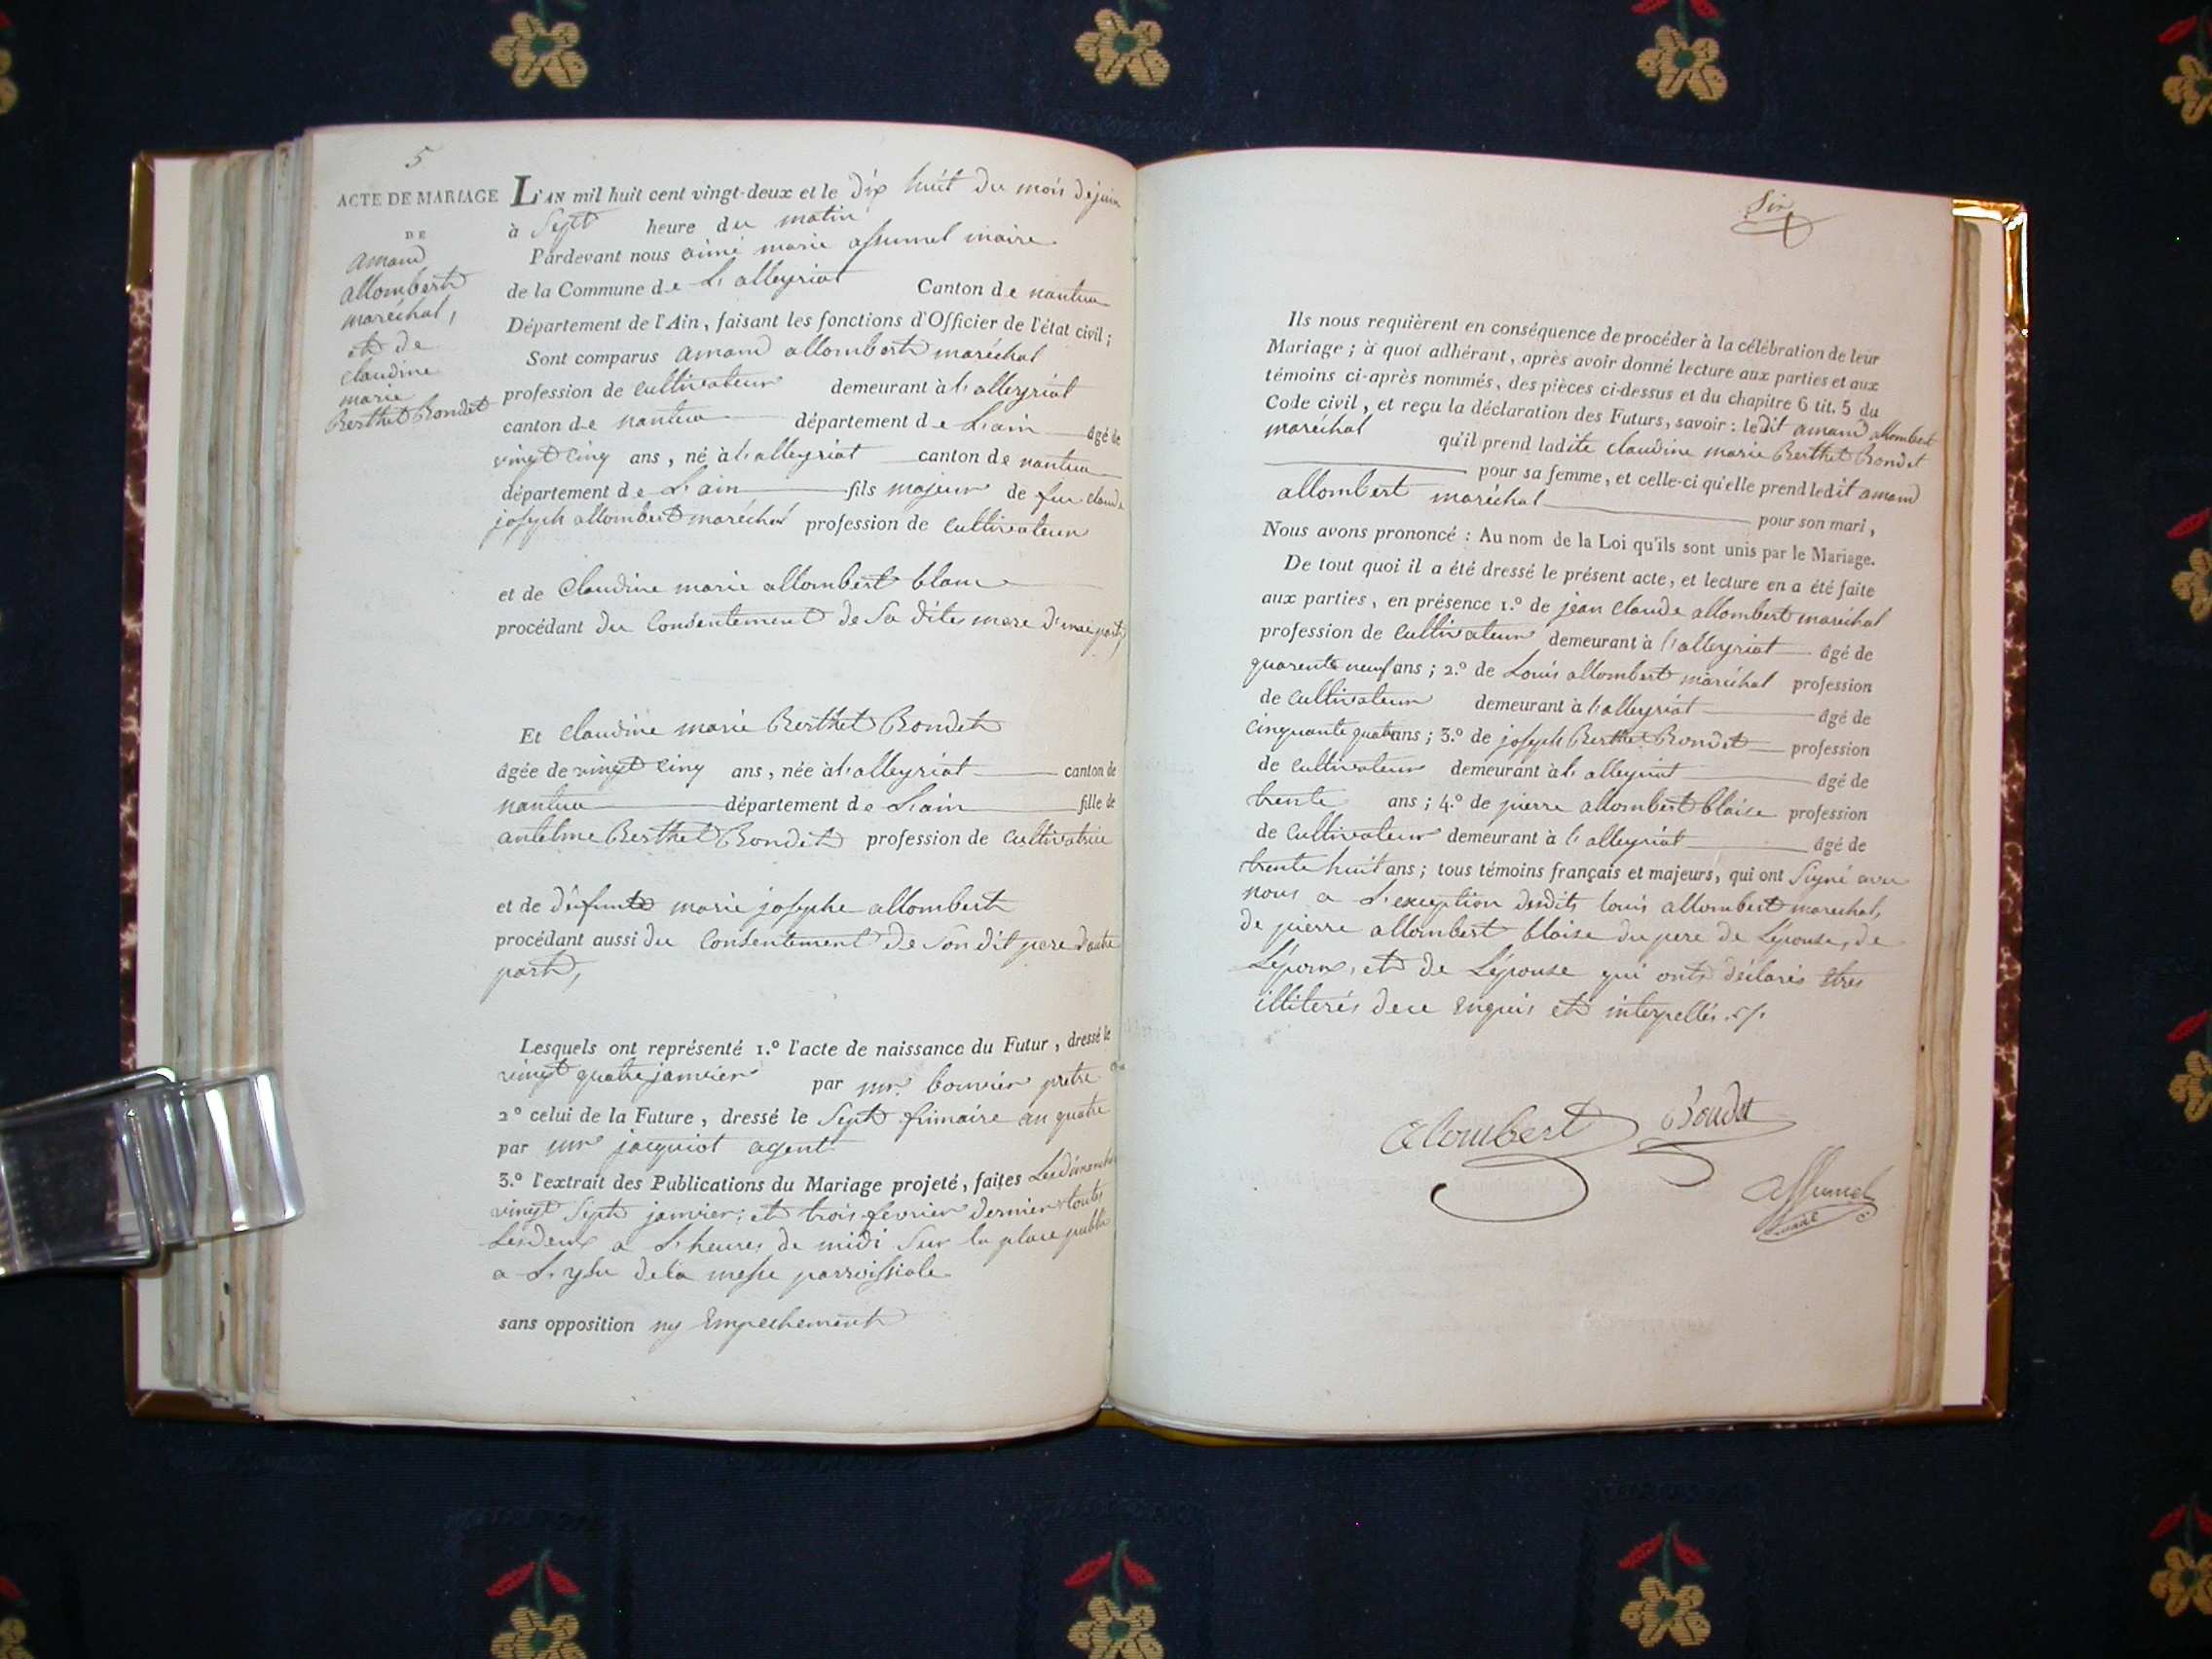 5
ACTE DE MARIAGE
DE
amand
allombert
maréchal,
et de
claudine
marie
Berthet Bondet
L'AN mil huit cent vingt-deux et le dix huit du mois de juin
à Sept heure du matin
Pardevant nous aimé marie assumel maire
de la Commune de L'alleyriat Canton de nantua
Département de l'Ain, faisant les fonctions d'Officier de l'état civil;
Sont comparus amand allombert maréchal
profession de cultivateur demeurant à l'alleyriat
canton de nantua département de L'ain âgé de
vingt cinq ans, né à l'alleyriat canton de nantua
département de L'ain fils majeur de feu claude
joseph allombert maréchal profession de cultivateur
et de Claudine marie allombert blanc
procédant du Consentement de sa dite mere d'une part,
Et claudine marie Berthet Bondet
âgée de vingt cinq ans, née à l'alleyriat canton de
nantua département de L'ain fille de
antelme Berthet Bondet profession de cultivatrice
et de défunte marie josephe allombert
procédant aussi du Consentement de son dit pere d'autre
part,
Lesquels ont représenté 1.º l'acte de naissance du Futur, dressé le
vingt quatre janvier par mr. bouvier pretre
2º celui de la Future, dressé le Sept frimaire an quatre
par mr jacquiot agent
3.º l'extrait des Publications du Mariage projeté, faites Les dimanches
vingt Sept janvier; et trois fevrier dernier toutes
Les deux a L'heure de midi Sur la place publi
a L'yssu de la messe parroissiale
sans opposition ny Empechement
Six
Ils nous requièrent en conséquence de procéder à la célébration de leur
Mariage; à quoi adhérant, après avoir donné lecture aux parties et aux
témoins ci-après nommés, des pièces ci-dessus et du chapitre 6 tit. 5 du
Code civil, et reçu la déclaration des Futurs, savoir: ledit amand allombert
marechal qu'il prend ladite claudine marie Berthet Bondet
pour sa femme, et celle-ci qu'elle prend ledit amand
allombert maréchal pour son mari,
Nous avons prononcé: Au nom de la Loi qu'ils sont unis par le Mariage.
De tout quoi il a été dressé le présent acte, et lecture en a été faite
aux parties, en présence 1.º de jean claude allombert maréchal
profession de cultivateur demeurant à l'alleyriat âgé de
quarente neuf ans; 2.º de Louis allombert maréchal profession
de cultivateur demeurant à l'alleyriat âgé de
cinquante quatre ans; 3.º de joseph Berthet Bondet profession
de cultivateur demeurant à l'alleyriat âgé de
trente ans; 4.º de pierre allombert blaise profession
de cultivateur demeurant à l'alleyriat âgé de
trente huit ans; tous témoins français et majeurs, qui ont Signé avec
nous a L'exception desdits louis allombert marechal,
de pierre allombert blaise du pere de Lépouse, de
Lépoux, et de Lépouse qui onts déclarés etres
illiterés de ce Enquis et interpellés.
alombert Bondet
assumel
maire